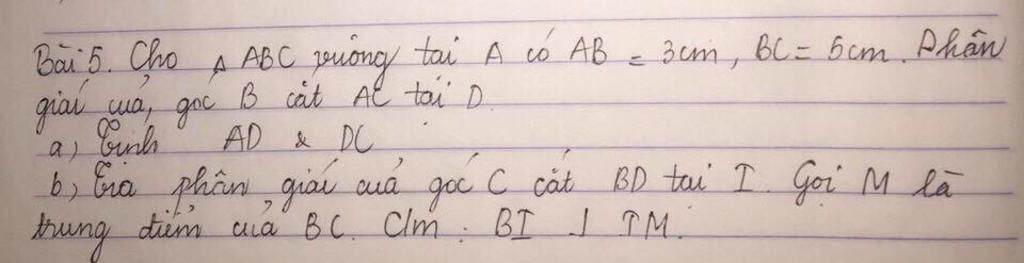 Bài 5. Cho △ ABC vuông tại A có AB = 3cm, BC = 5cm. Phân
giác của góc B cắt AC tại D.
a) Tính AD & DC
b) Tia phân giác của góc C cắt BD tại I. Gọi M là
trung điểm của BC. C/m: BI ⊥ IM.